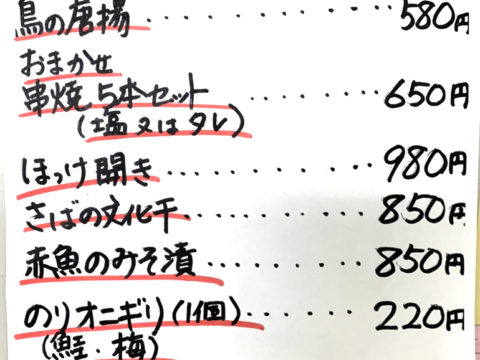 鳥の唐揚 ........... 580円
おまかせ
串焼 5本セット ......... 650円
(塩又はタレ)
ほっけ開き ............ 980円
さばの文化干 .......... 850円
赤魚のみそ漬 ......... 850円
のりオニギリ(1個) ...... 220円
(鮭・梅)